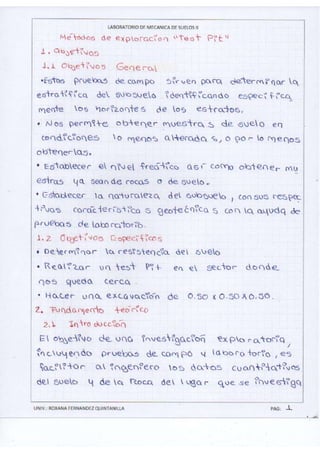 LABORATORIO DE MECANICA DE SUELOS II
Metodos de exploracion "Test Pit"
1. Objetivos
1.1 Objetivos General
•Estas pruebas de campo sirven para determinar la
estratifica del subsuelo identificando especifica
mente los horizontes de los estratos.
• Nos permite obtener muestras de suelo en
condiciones lo menos alterada s, o por lo menos
obtenerlas.
• Establecer el nivel freático así como obtener mu
estras ya sean de rocas o de suelo.
• Establecer la naturaleza del subsuelo, con sus respec
tivas característica s geotécnica s con la ayuda de
pruebas de laboratorio.
1.2 Objetivos Especificos
• Determinar la resistencia del suelo
• Realizar un test Pit en el sector donde
nos queda cerca.
• Hacer una excavación de 0.50 x 0.50 x 0.50.
2. Fundamento teórico
2.1 Introducción
El objetivo de una investigación exploratoria,
incluyendo pruebas de campo y laboratorio, es
facilitar al ingeniero los datos cuantitativos
del suelo y de la Roca del lugar que se investiga
UNIV.: ROXANA FERNANDEZ QUINTANILLA
PAG. 1